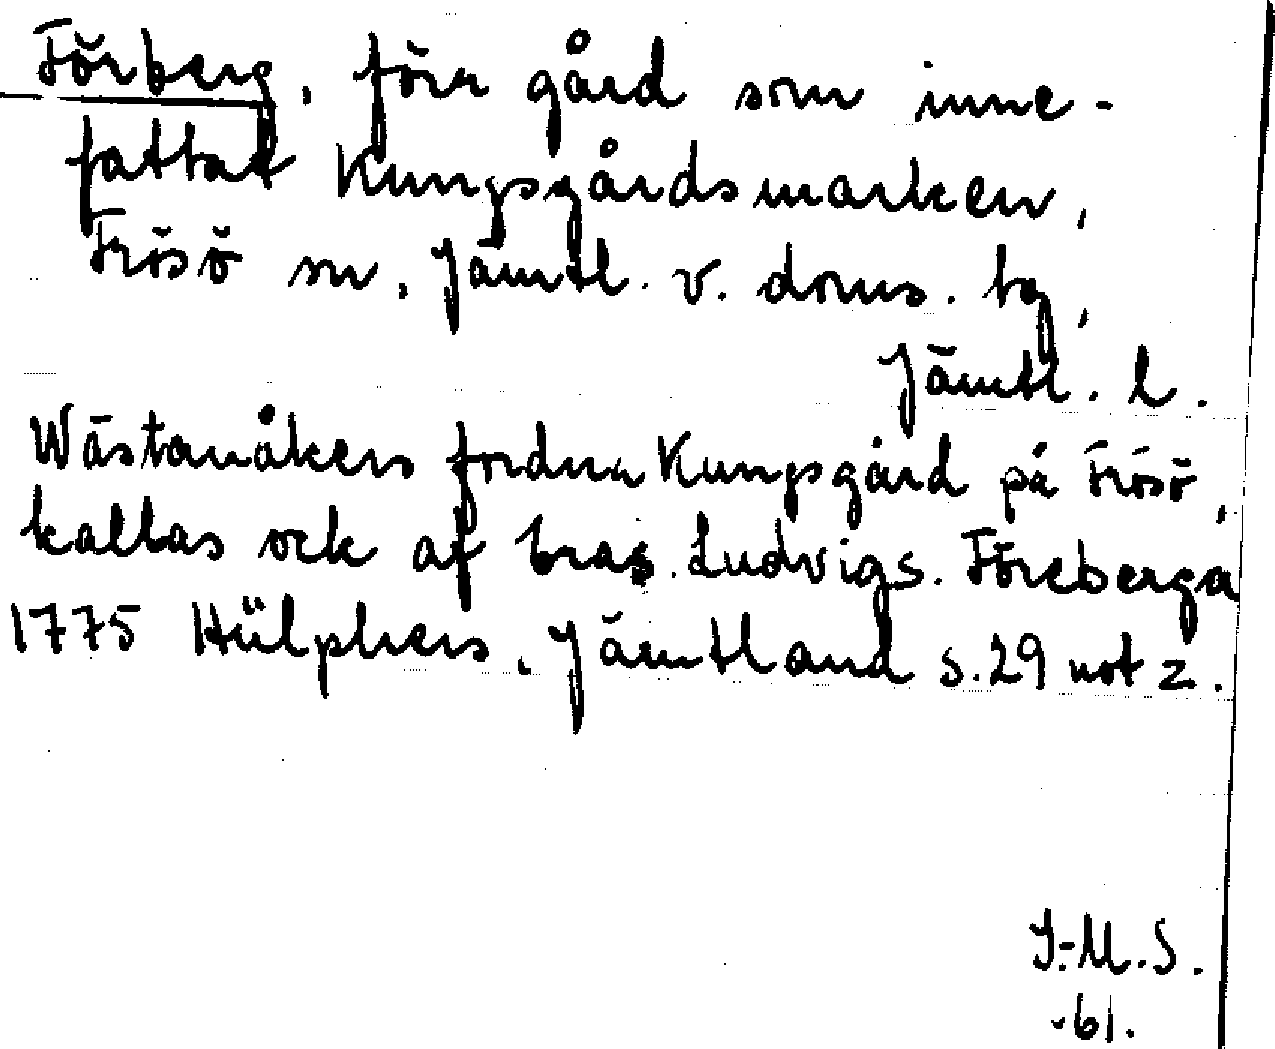 Förberg, förr gård som inne-
fattat Kungsgårdsmarken,
Frösö sn, Jämtl. v. doms. tg,
Jämtl. l.
Wästanåkers fordna Kungsgård på Frösö,
kallas ock af bras. Ludvigs. Föreberga
1775 Hülphers, Jämtland s. 29 not z.
I.-M.S.
-61.